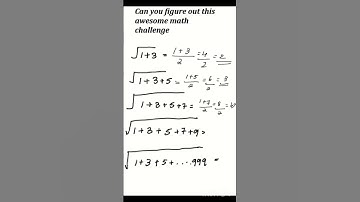 Can you figure out this
awesome math
challenge
√1+3 = 1+3/2 = 4/2 = 2
√1+3+5 = 1+5/2 = 6/2 = 3
√1+3+5+7 = 1+7/2 = 8/2 =
√1+3+5+7+9 =
√1+3+5+...999 =